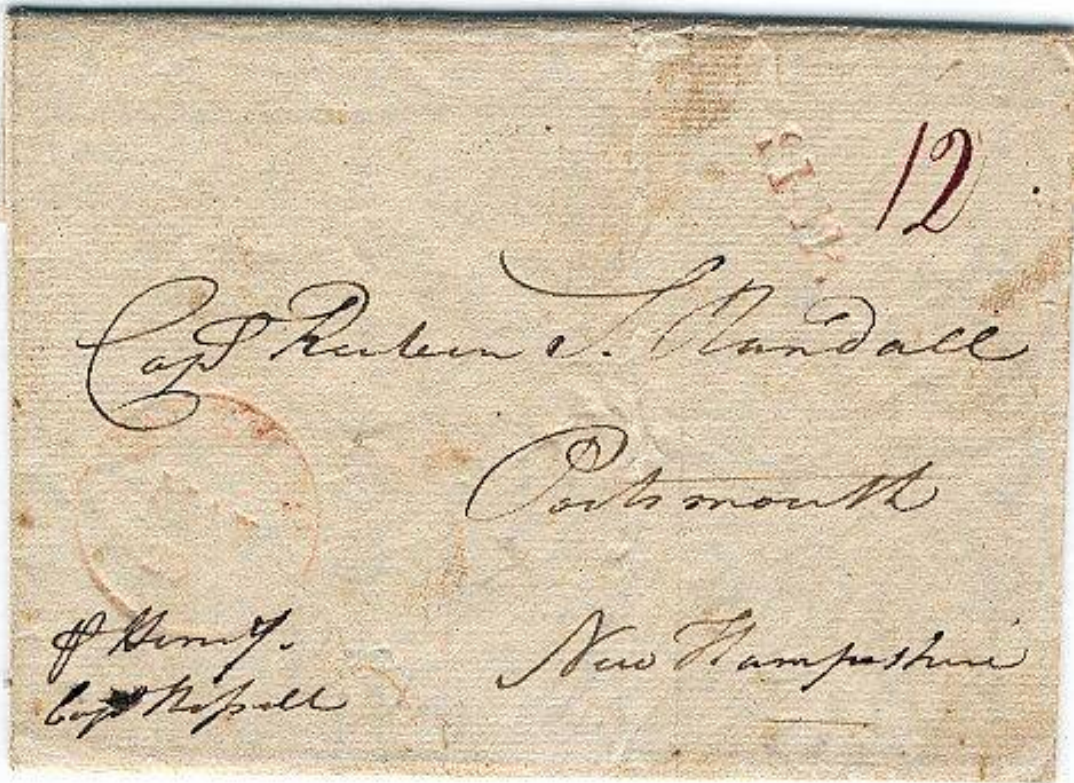 12
SHIP
Capt Reuben S. Randall
Portsmouth
New Hampshire
p Henry.
Capt